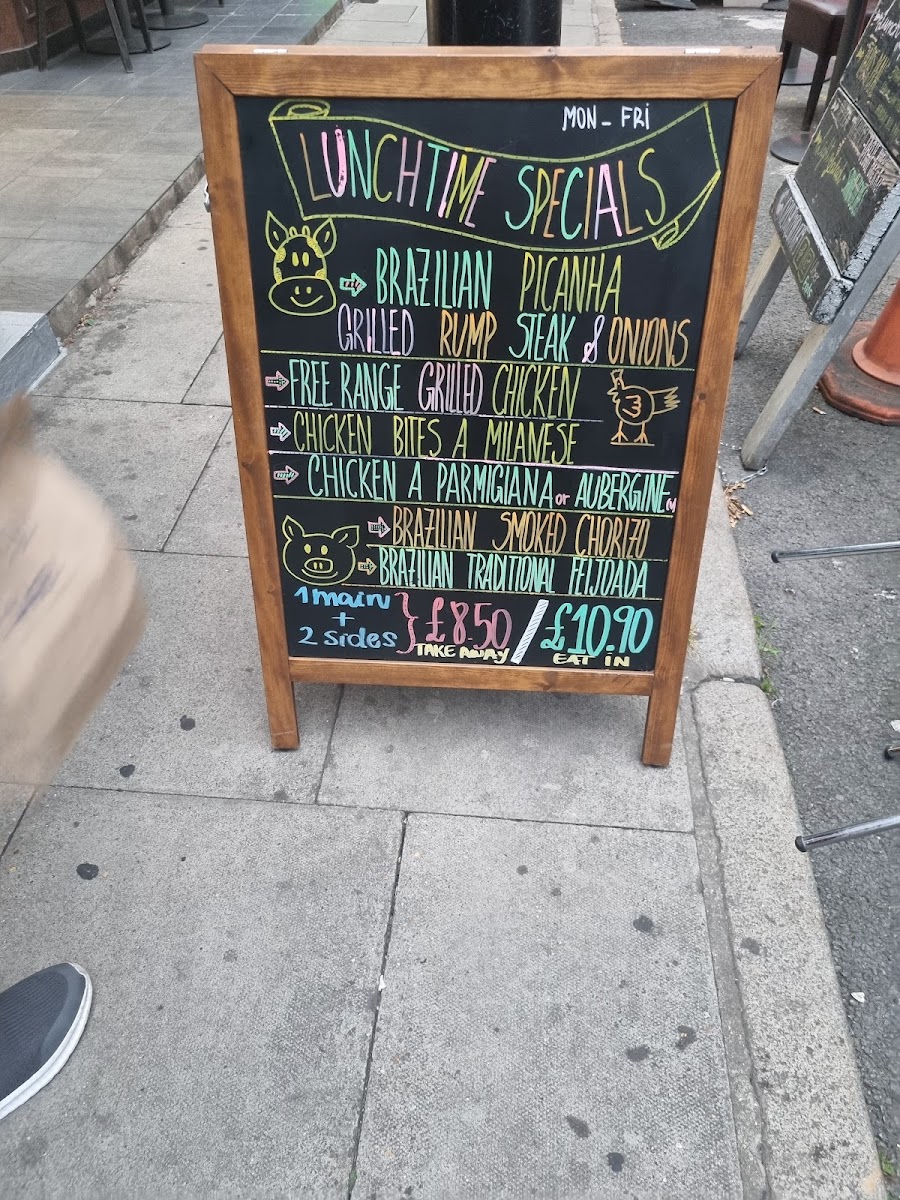 MON - FRI
LUNCHTIME SPECIALS
BRAZILIAN PICANHA
GRILLED RUMP STEAK & ONIONS
FREE RANGE GRILLED CHICKEN
CHICKEN BITES A MILANESE
CHICKEN A PARMIGIANA or AUBERGINE (V)
BRAZILIAN SMOKED CHORIZO
BRAZILIAN TRADITIONAL FEIJOADA
1 main + 2 sides } £8.50 / £10.90
TAKE AWAY EAT IN